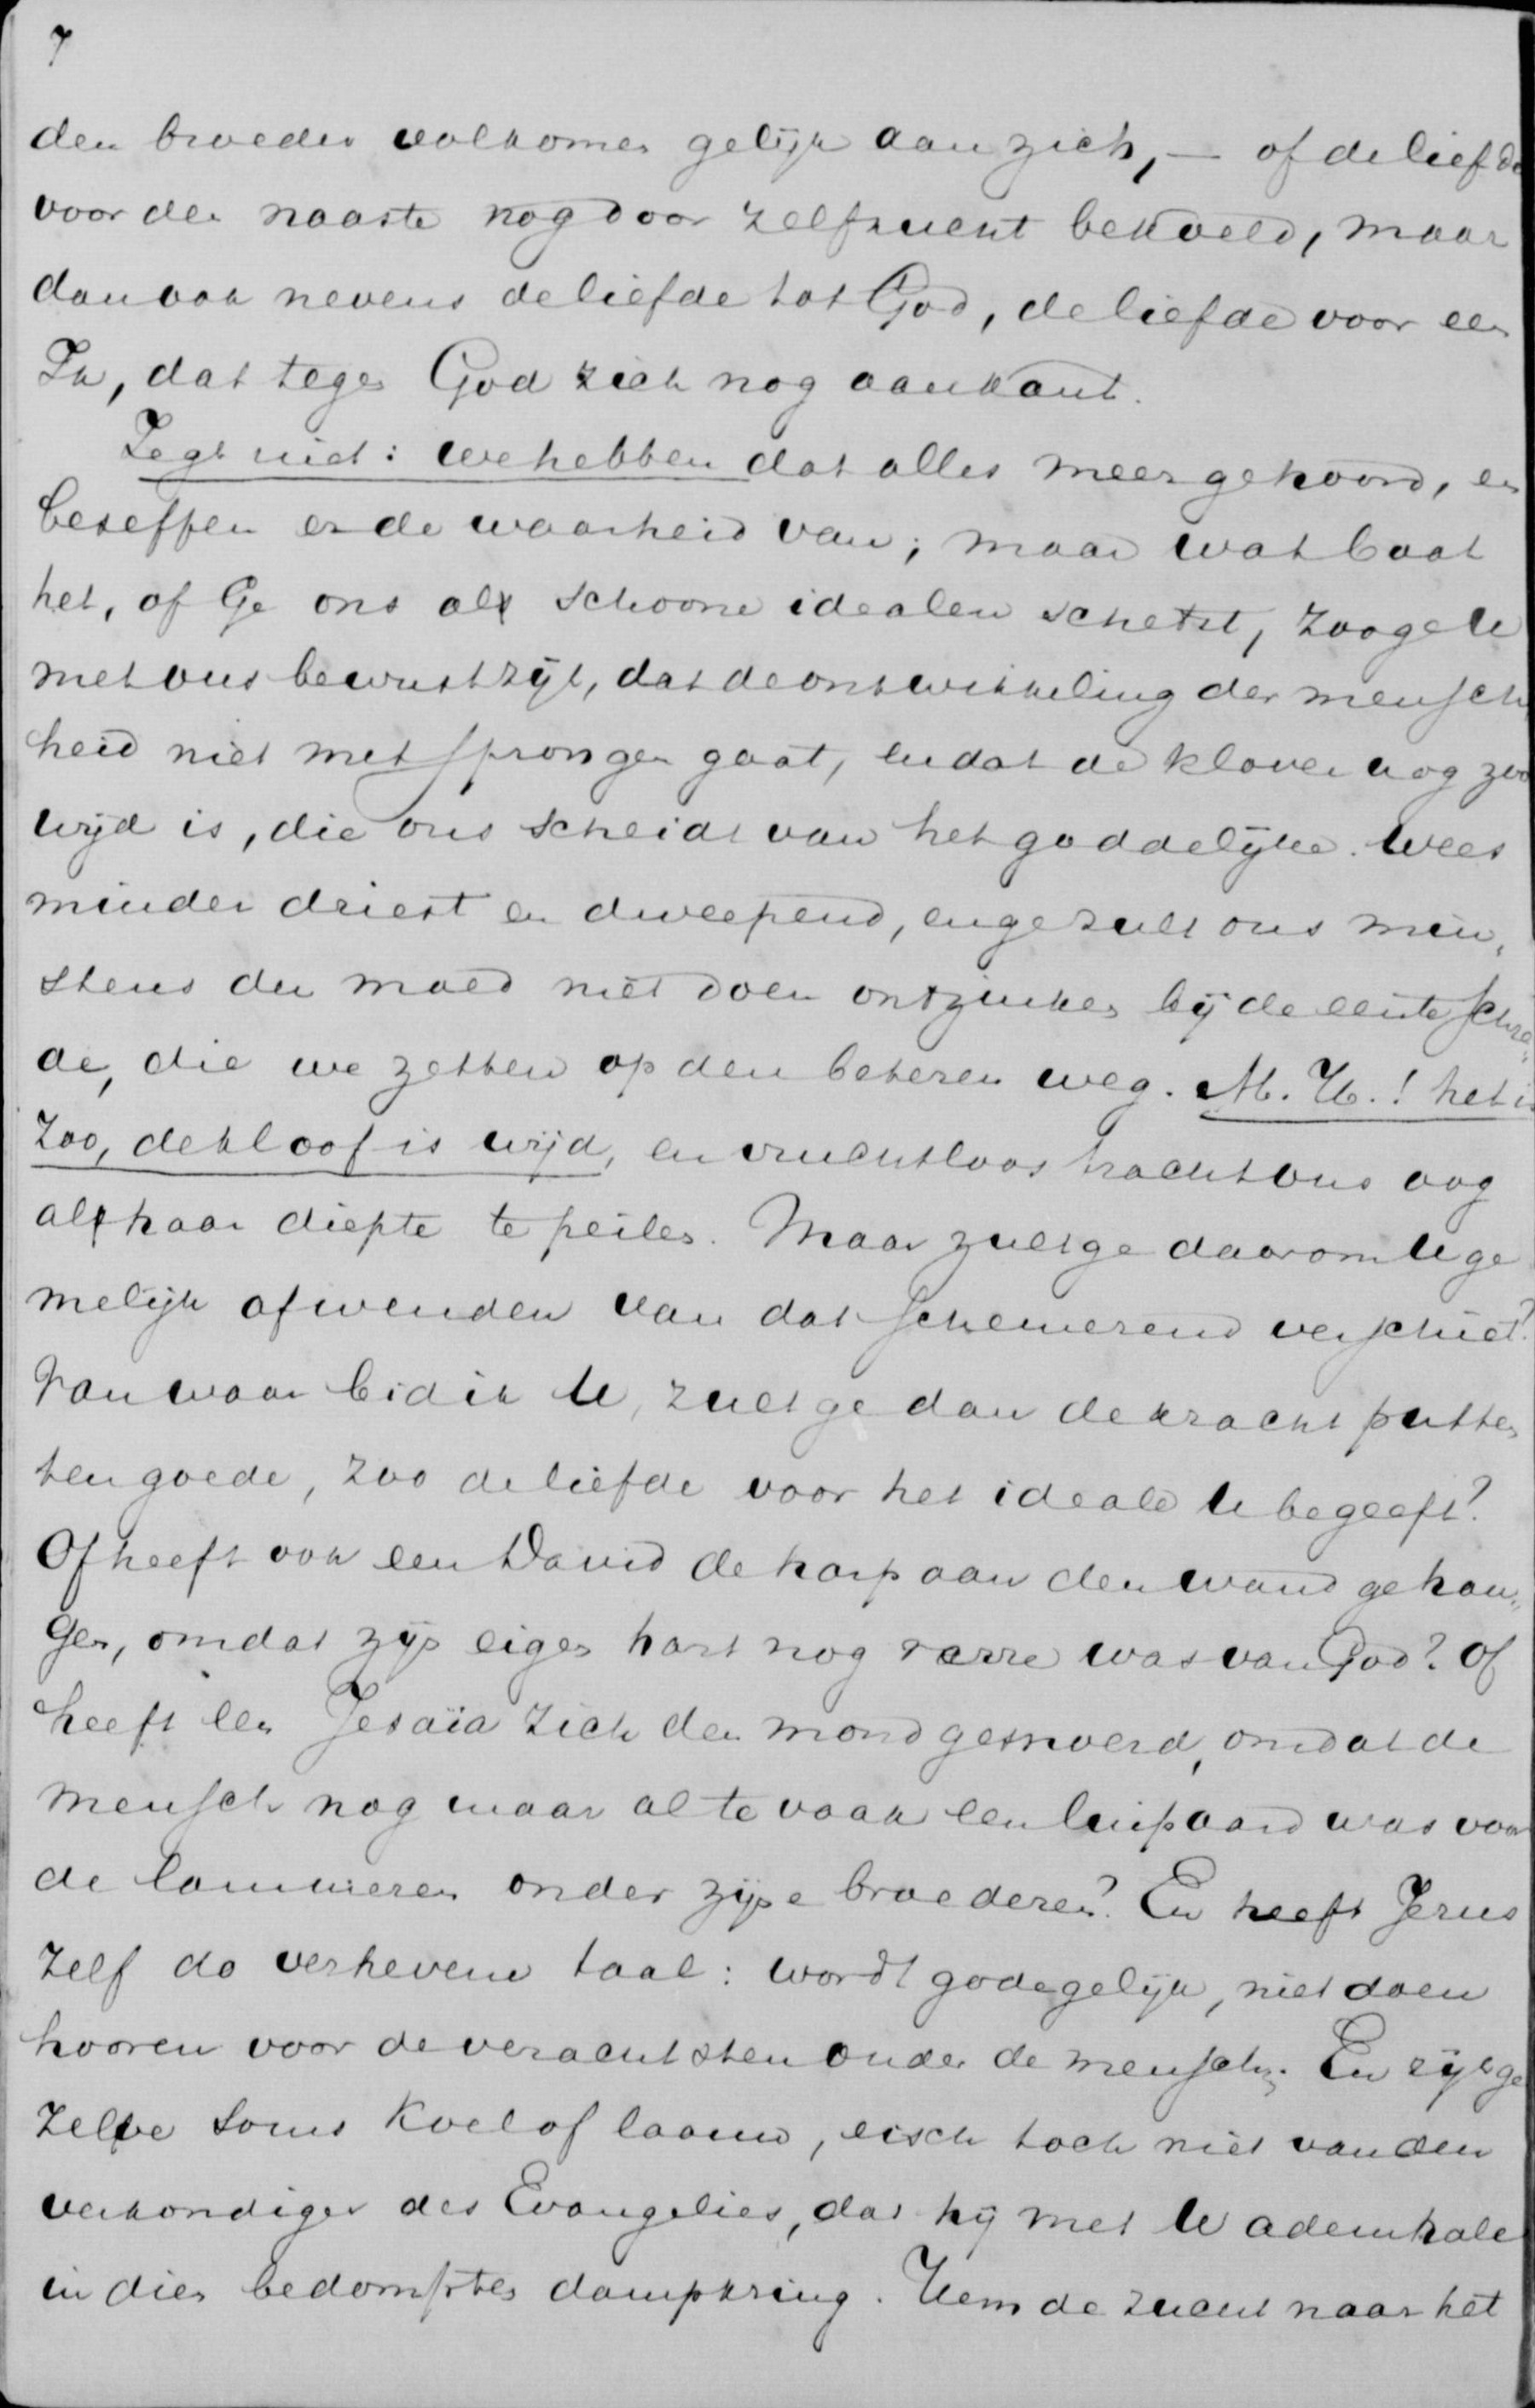 7
den broeder volkomen gelijk aan zich, — of de liefde
voor den naaste nog door zelfzucht bekoeld, maar
dan ook nevens de liefde tot God, de liefde voor een
Ik, dat tegen God zich nog aankant.
Zegt niet: we hebben dat alles meer gehoord, en
beseffen er de waarheid van; maar wat baat
het, of Ge ons al schoone idealen schetst, zoo ge U
met ons bewust zijt, dat de ontwikkeling der mensch
heid niet met sprongen gaat, en dat de kloven nog zoo
wijd is, die ons scheidt van het goddelijke. Wees
minder driest en dweepend, en ge zult ons min„
stens den moed niet doen ontzinken bij de eerste schre„
de, die we zetten op den beteren weg. M. H.! het is
zoo, de kloof is wijd, en vruchtloos tracht ons oog
al haar diepte te peilen. Maar zult ge daarom U ge
melijk afwenden van dat schemerend verschiet?
Van waar bid ik U, zult ge dan de kracht putten
ten goede, zoo de liefde voor het ideale U begeeft?
Of heeft ook een David de harp aan den wand gehan„
gen, omdat zijn eigen hart nog verre was van God? Of
heeft een Jesaïa zich den mond gesnoerd, omdat de
mensch nog maar al te vaak een luipaard was voor
de lammeren onder zijne broederen? En heeft Jezus
zelf de verhevene taal: wordt godegelijk, niet doen
hooren voor de verachtsten onder de menschen. En zijt ge
zelve soms koel of laauw, eisch toch niet van den
verkondiger des Evangelies, dat hij met U ademhale
in dien bedompten dampkring. Hem de zucht naar het